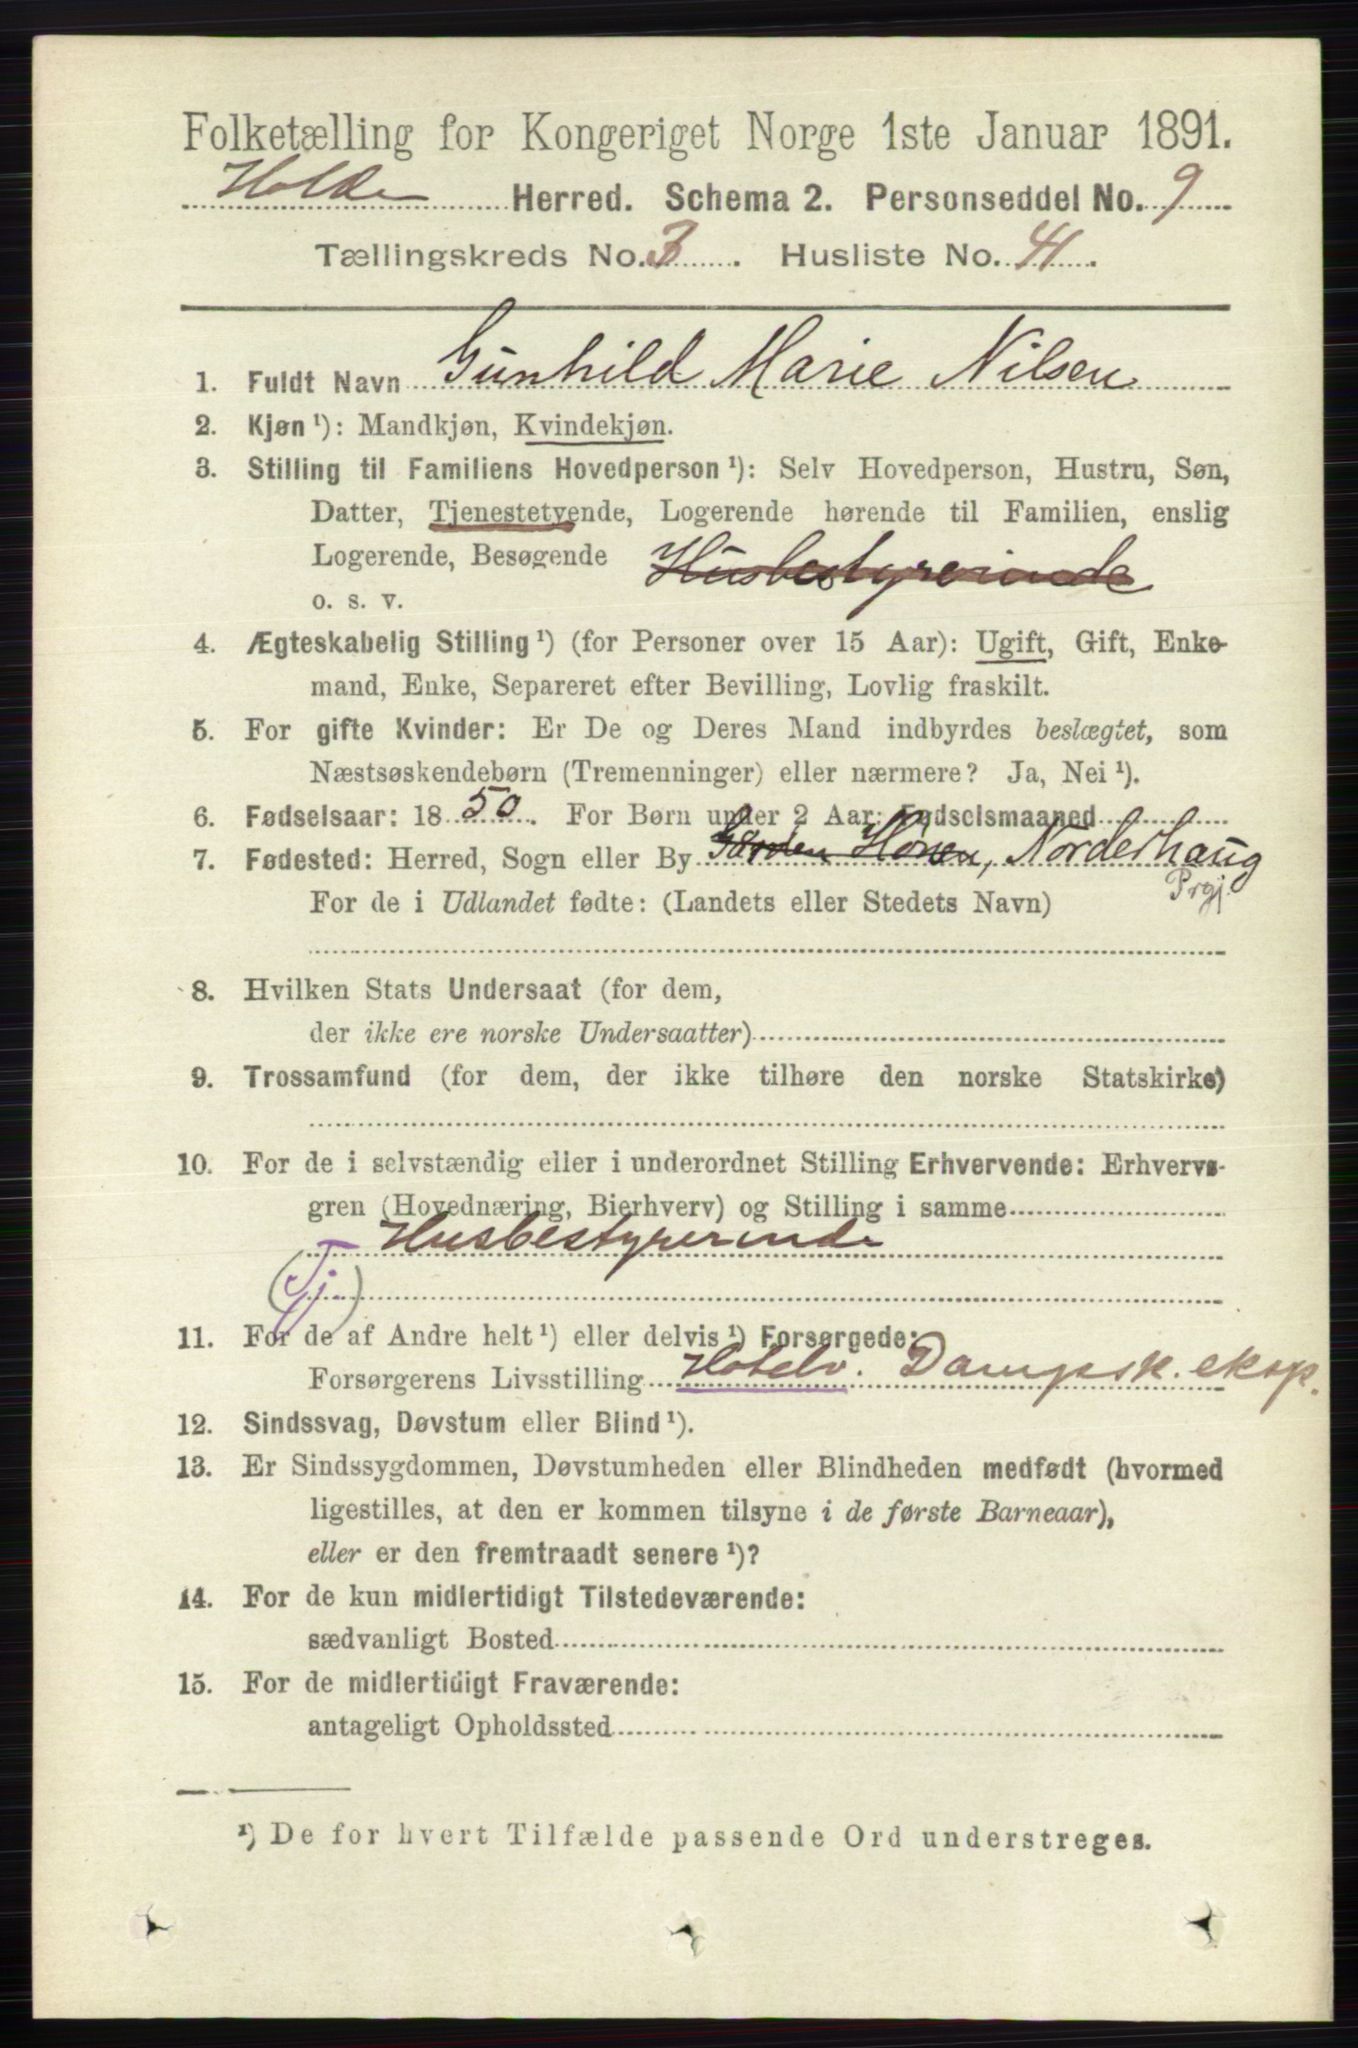 Folketælling for Kongeriget Norge 1ste Januar 1891.
Holde Herred. Schema 2. Personseddel No. 9
Tællingskreds No. 3. Husliste No. 41.
1. Fuldt Navn Gunhild Marie Nilsen
2. Kjøn ¹): Mandkjøn, Kvindekjøn.
3. Stilling til Familiens Hovedperson ¹): Selv Hovedperson, Hustru, Søn,
Datter, Tjenestetyende, Logerende hørende til Familien, enslig
Logerende, Besøgende Husbestyrerinde
o. s. v.
4. Ægteskabelig Stilling ¹) (for Personer over 15 Aar): Ugift, Gift, Enke-
mand, Enke, Separeret efter Bevilling, Lovlig fraskilt.
5. For gifte Kvinder: Er De og Deres Mand indbyrdes beslægtet, som
Næstsøskendebørn (Tremenninger) eller nærmere? Ja, Nei ¹).
6. Fødselsaar: 1850. For Børn under 2 Aar: Fødselsmaaned
7. Fødested: Herred, Sogn eller By Gården Hønen, Norderhaug
Prgj.
For de i Udlandet fødte: (Landets eller Stedets Navn)
8. Hvilken Stats Undersaat (for dem,
der ikke ere norske Undersaatter)
9. Trossamfund (for dem, der ikke tilhøre den norske Statskirke)
10. For de i selvstændig eller i underordnet Stilling Erhvervende: Erhvervs-
gren (Hovednæring, Bierhverv) og Stilling i samme
Husbestyrerinde
(Tj)
11. For de af Andre helt ¹) eller delvis ¹) Forsørgede:
Forsørgerens Livsstilling Hotelv. Dampsk. eksp.
12. Sindssvag, Døvstum eller Blind ¹).
13. Er Sindssygdommen, Døvstumheden eller Blindheden medfødt (hvormed
ligestilles, at den er kommen tilsyne i de første Barneaar),
eller er den fremtraadt senere ¹)?
14. For de kun midlertidigt Tilstedeværende:
sædvanligt Bosted
15. For de midlertidigt Fraværende:
antageligt Opholdssted
¹) De for hvert Tilfælde passende Ord understreges.